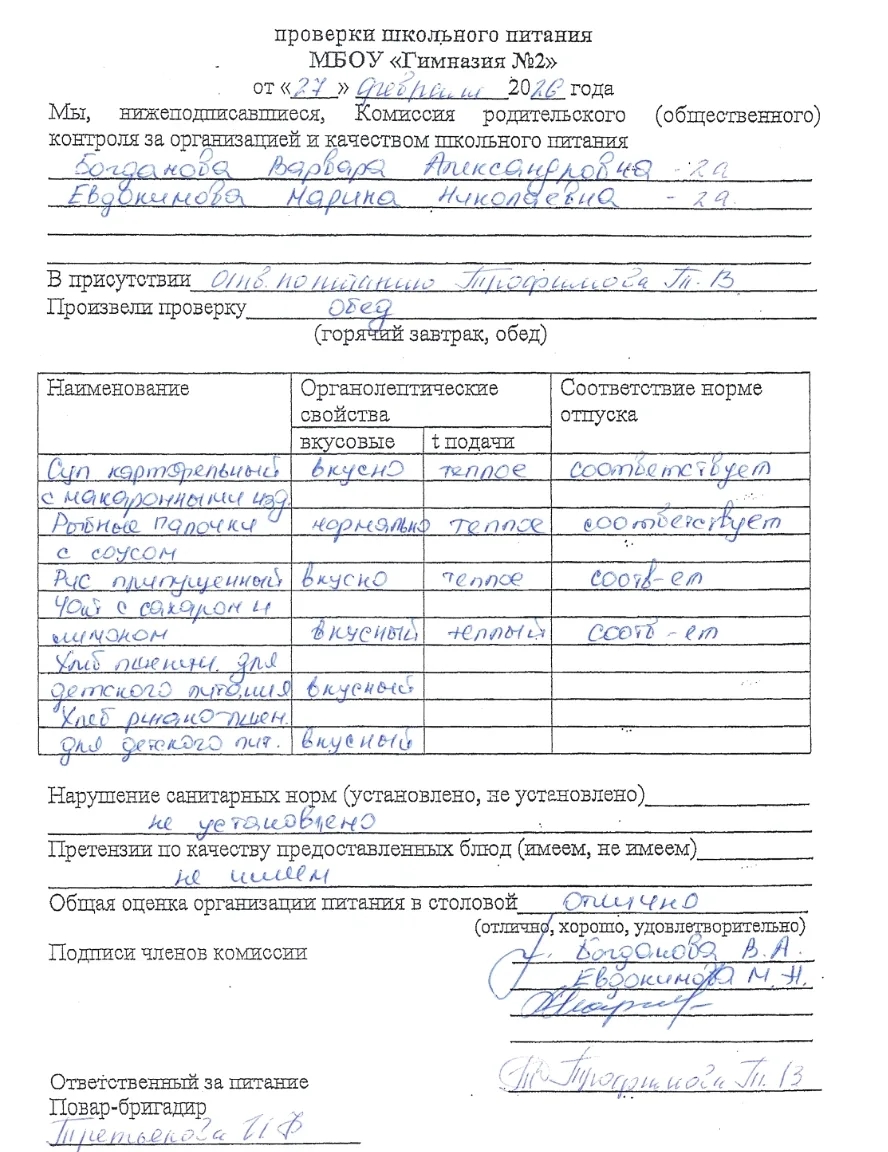 проверки школьного питания
МБОУ «Гимназия №2»
от «27» февраля 2026 года
Мы, нижеподписавшиеся, Комиссия родительского (общественного)
контроля за организацией и качеством школьного питания
Богданова Варвара Александровна - 2а
Евдокимова Марина Николаевна - 2а
В присутствии Отв. по питанию Трофимова Т. В
Произвели проверку обед
(горячий завтрак, обед)
Наименование Органолептические свойства Соответствие норме отпуска
вкусовые t подачи
Суп картофельный вкусно теплое соответствует
с макаронными изд.
Рыбные палочки нормально теплое соответствует
с соусом
Рис припущенный вкусно теплое соотв-ет
Чай с сахаром и
лимоном вкусный теплый соотв-ет
Хлеб пшенич. для
детского питания вкусный
Хлеб ржано-пшен.
для детского пит. вкусный
Нарушение санитарных норм (установлено, не установлено)
не установлено
Претензии по качеству предоставленных блюд (имеем, не имеем)
не имеем
Общая оценка организации питания в столовой отлично
(отлично, хорошо, удовлетворительно)
Подписи членов комиссии Богданова В. А.
Евдокимова М. Н.
Ответственный за питание Трофимова Т. В
Повар-бригадир
Третьякова И Ф